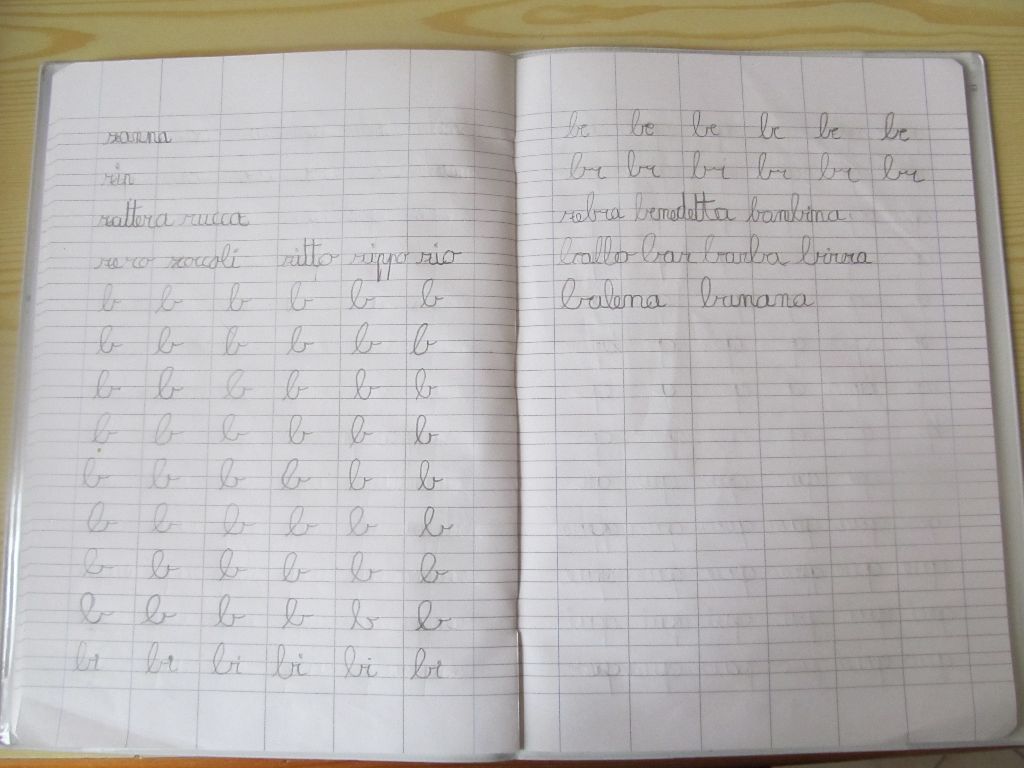 zanna
zattera zucca
zero zoccoli zitto zippo zio
b b b b b b
b b b b b b
b b b b b b
b b b b b b
b b b b b b
b b b b b b
b b b b b b
b b b b b b
bi bi bi bi bi bi
be be be be be be
br br br br br br
zebra benedetta bambina
ballo bar barba birra
balena banana